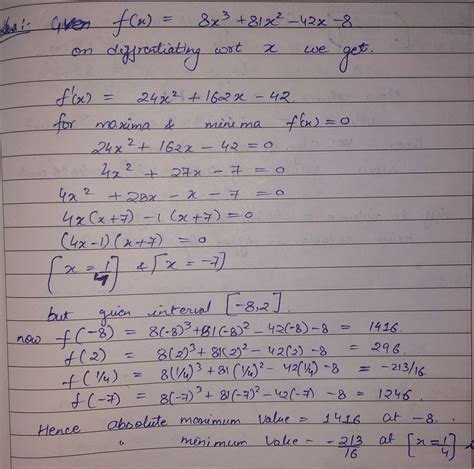 Given f(x) = 8x³ + 81x² - 42x - 8
on differentiating wrt x we get.
f'(x) = 24x² + 162x - 42.
for maxima & minima f'(x) = 0
24x² + 162x - 42 = 0
4x² + 27x - 7 = 0
4x² + 28x - x - 7 = 0
4x(x+7) - 1(x+7) = 0
(4x-1)(x+7) = 0
[x = 1/4] & [x = -7]
but given interval [-8,2].
now f(-8) = 8(-8)³ + 81(-8)² - 42(-8) - 8 = 1416.
f(2) = 8(2)³ + 81(2)² - 42(2) - 8 = 296.
f(1/4) = 8(1/4)³ + 81(1/4)² - 42(1/4) - 8 = -213/16
f(-7) = 8(-7)³ + 81(-7)² - 42(-7) - 8 = 1246.
Hence absolute maximum value = 1416 at -8.
" minimum value = -213/16 at [x = 1/4]